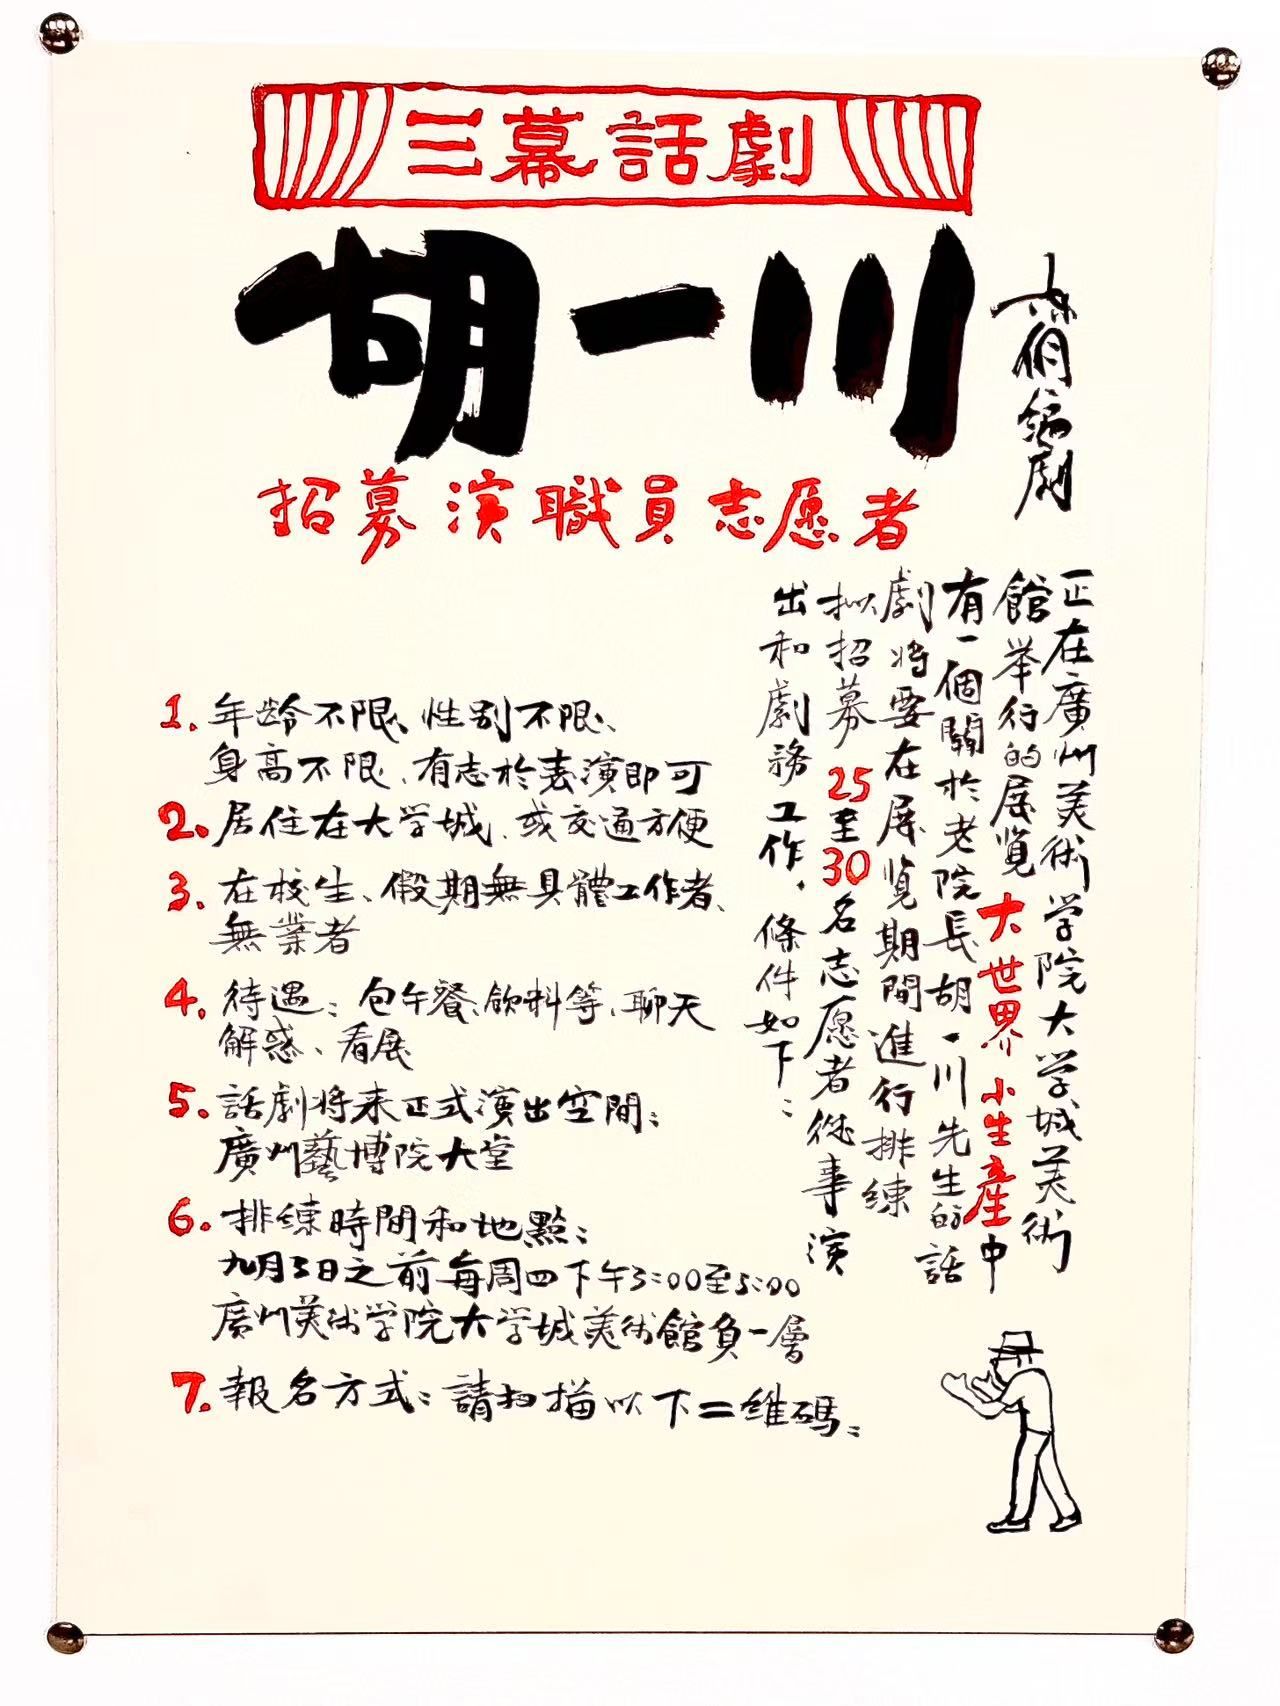 三幕話劇
胡一川
編劇
招募演職員志愿者
正在廣州美術学院大学城美術
館举行的展覧大世界小生産中
有一個關於老院長胡一川先生的話
劇将要在展覧期間進行排練
拟招募25至30名志愿者從事演
出和劇務工作，條件如下：
1.年龄不限、性别不限、
身高不限、有志於表演即可
2.居住在大学城、或交通方便
3.在校生、假期無具體工作者、
無業者
4.待遇：包午餐、飲料等、聊天
解惑、看展
5.話劇将来正式演出空間：
廣州藝博院大堂
6.排練時間和地點：
九月3日之前每周四下午3:00至5:00
廣州美術学院大学城美術館負一層
7.報名方式：請扫描以下二維碼：